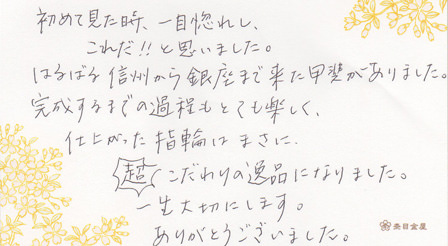 初めて見た時、一目惚れし、
これだ!!と思いました。
はるばる信州から銀座まで来た甲斐がありました。
完成するまでの過程もとても楽しく、
仕上がった指輪はまさに、
超 こだわりの逸品になりました。
一生大切にします。
ありがとうございました。
杢目金屋